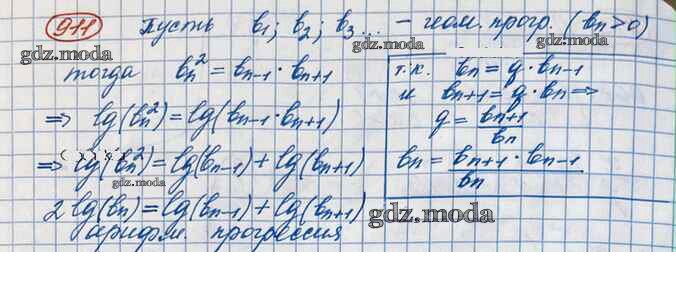 911 Пусть b₁; b₂; b₃... – геом. прогр. (bₙ>0)
gdz.moda
gdz.moda
тогда bₙ² = bₙ₋₁ · bₙ₊₁
=> lg(bₙ²) = lg(bₙ₋₁ · bₙ₊₁)
=> lg(bₙ²) = lg(bₙ₋₁) + lg(bₙ₊₁)
gdz.moda
2 lg(bₙ) = lg(bₙ₋₁) + lg(bₙ₊₁)
арифм. прогрессия
gdz.moda
т.к. bₙ = q · bₙ₋₁
и bₙ₊₁ = q · bₙ =>
q = bₙ₊₁ / bₙ
bₙ = bₙ₊₁ · bₙ₋₁ / bₙ
gdz.moda